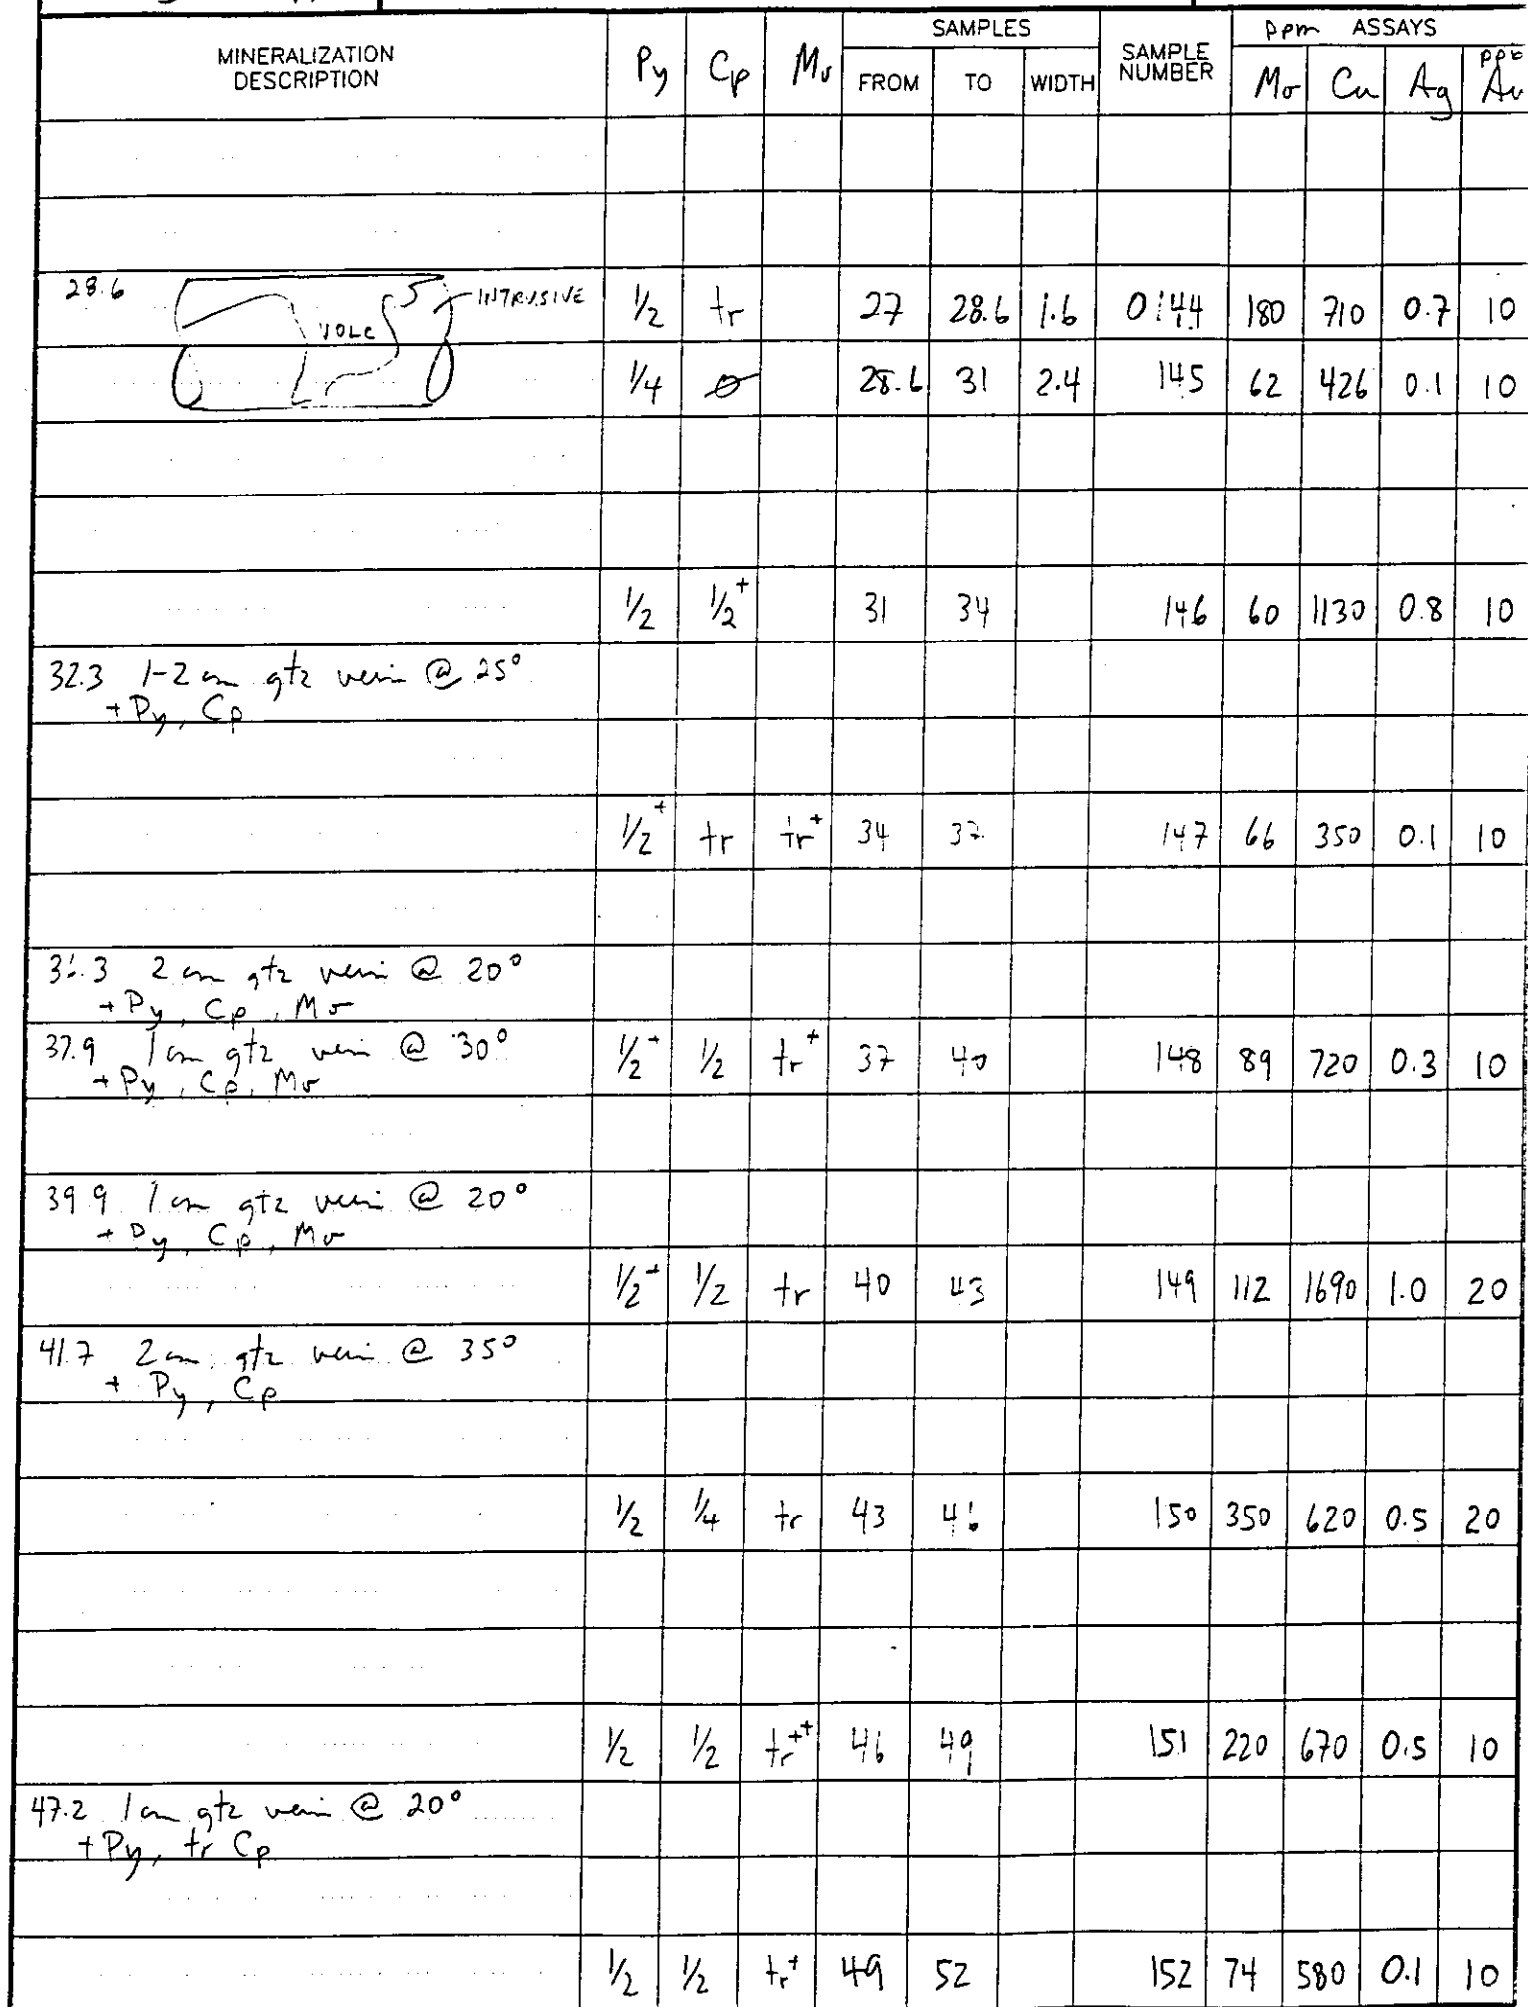 SAMPLES ppm ASSAYS
MINERALIZATION DESCRIPTION Py Cp Mo FROM TO WIDTH SAMPLE NUMBER Mo Cu Ag ppb Au
28.6 VOLC INTRUSIVE 1/2 tr 27 28.6 1.6 0144 180 710 0.7 10
1/4 ø 28.6 31 2.4 145 62 426 0.1 10
1/2 1/2+ 31 34 146 60 1130 0.8 10
32.3 1-2 cm qtz vein @ 25°
+ Py, Cp
1/2+ tr tr+ 34 37 147 66 350 0.1 10
2 cm qtz vein @ 20°
+ Py, Cp, Mo
37.9 1 cm qtz vein @ 30° 1/2+ 1/2 tr+ 37 40 148 89 720 0.3 10
+ Py, Cp, Mo
39.9 1 cm qtz vein @ 20°
+ Py, Cp, Mo
1/2+ 1/2 tr 40 43 149 112 1690 1.0 20
41.7 2 cm qtz vein @ 35°
+ Py, Cp
1/2 1/4 tr 43 46 150 350 620 0.5 20
1/2 1/2 tr++ 46 49 151 220 670 0.5 10
47.2 1 cm qtz vein @ 20°
+ Py, tr Cp
1/2 1/2 tr+ 49 52 152 74 580 0.1 10